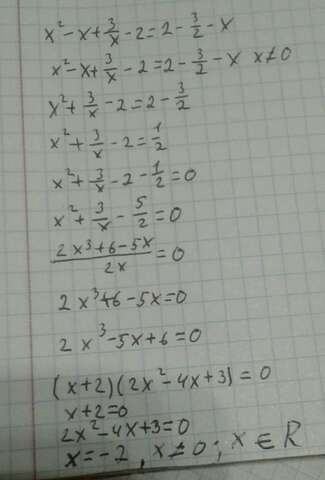 x² - x + 3/x - 2 = 2 - 3/2 - x
x² - x + 3/x - 2 = 2 - 3/2 - x x ≠ 0
x² + 3/x - 2 = 2 - 3/2
x² + 3/x - 2 = 1/2
x² + 3/x - 2 - 1/2 = 0
x² + 3/x - 5/2 = 0
(2x³ + 6 - 5x)/2x = 0
2x³ + 6 - 5x = 0
2x³ - 5x + 6 = 0
(x+2)(2x² - 4x + 3) = 0
x + 2 = 0
2x² - 4x + 3 = 0
x = -2, x ≠ 0; x ∈ R